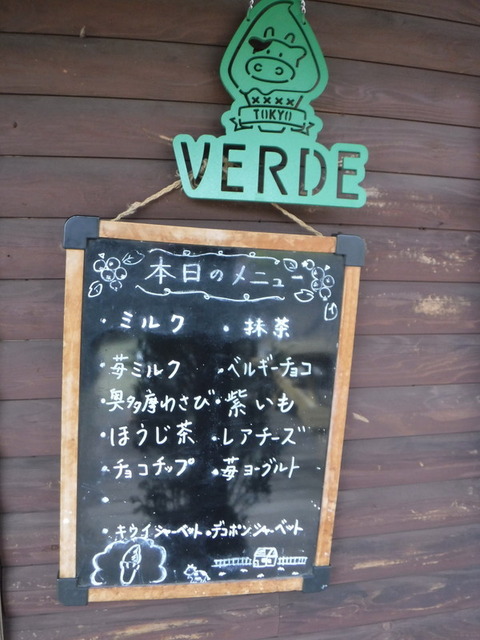 TOKYO
VERDE
本日のメニュー
・ミルク ・抹茶
・苺ミルク ・ベルギーチョコ
・奥多摩わさび ・紫いも
・ほうじ茶 ・レアチーズ
・チョコチップ ・苺ヨーグルト
・
・キウイシャーベット ・デコポンシャーベット